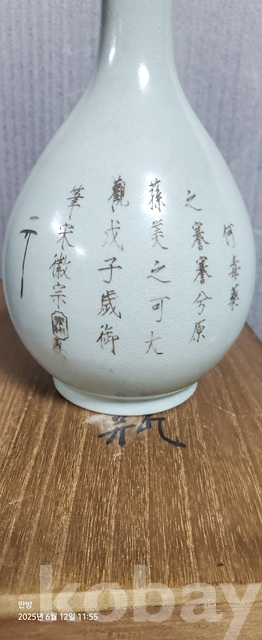 何喜藥
之蹇蹇兮原
蓀美之可大
觀戊子歲御
筆宋徽宗
안방
2025년 6월 12일 11:55
kobay